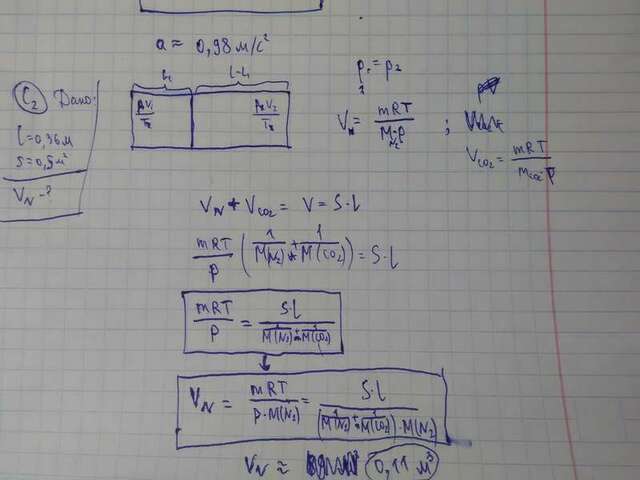 a ≈ 0,98 м/с²
C₂ Дано:
l = 0,36 м
S = 0,5 м²
V_N - ?
l₁ l-l₁
p₁V₁/T₁ p₂V₂/T₂
p₁ = p₂
V_N = mRT/(M_N₂·p) ; V_CO₂ = mRT/(M_CO₂·p)
V_N + V_CO₂ = V = S·l
mRT/p (1/M(N₂) + 1/M(CO₂)) = S·l
mRT/p = S·l/(1/M(N₂) + 1/M(CO₂))
V_N = mRT/(p·M(N₂)) = S·l/((1/M(N₂) + 1/M(CO₂))·M(N₂))
V_N ≈ 0,11 м³